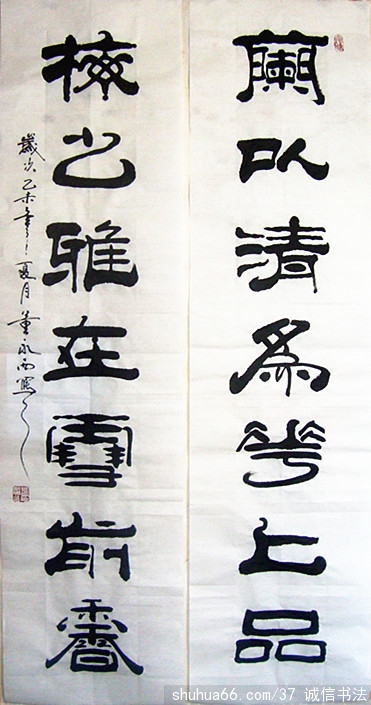 蘭以清為花上品
梅之雅在雪前香
歲次乙未年之夏月董永西寫之
shuhua66.com/37 诚信书法